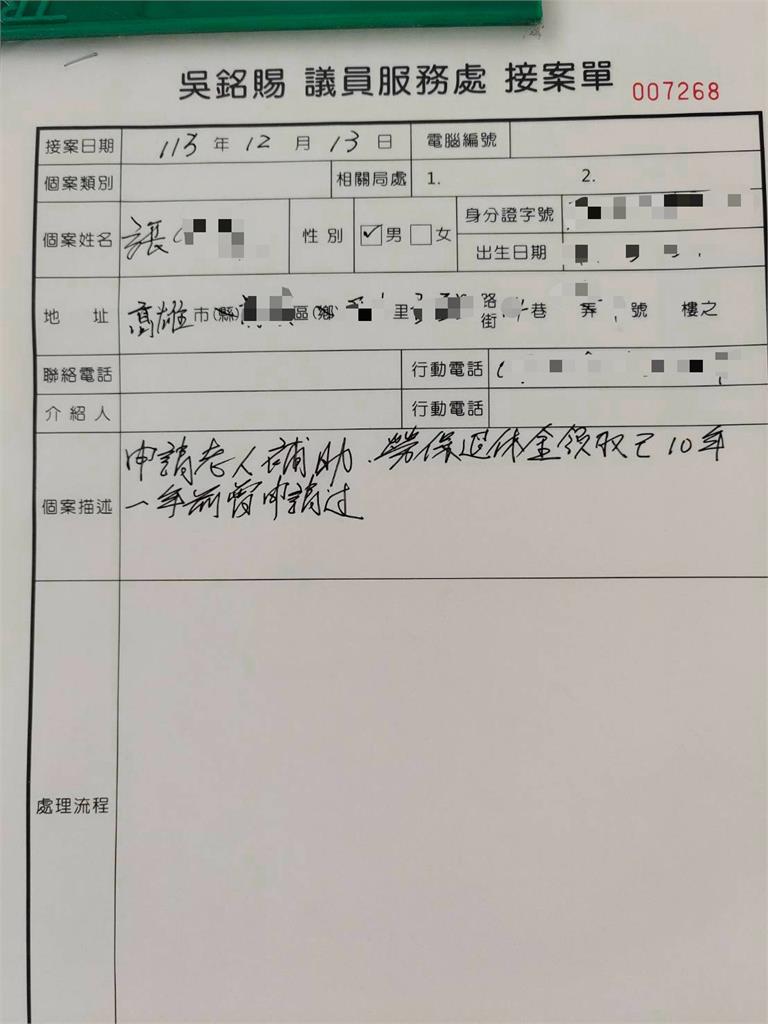 吳銘賜 議員服務處 接案單 007268
接案日期 113 年 12 月 13 日 電腦編號
個案類別 相關局處 1. 2.
個案姓名 張 性別 ✓男 □女 身分證字號
出生日期
地址 高雄市(縣) 區(鄉) 里 路街 巷 弄 號 樓之
聯絡電話 行動電話
介紹人 行動電話
個案描述
申請老人補助.勞保退休金領取已10年
一年前曾申請过
處理流程